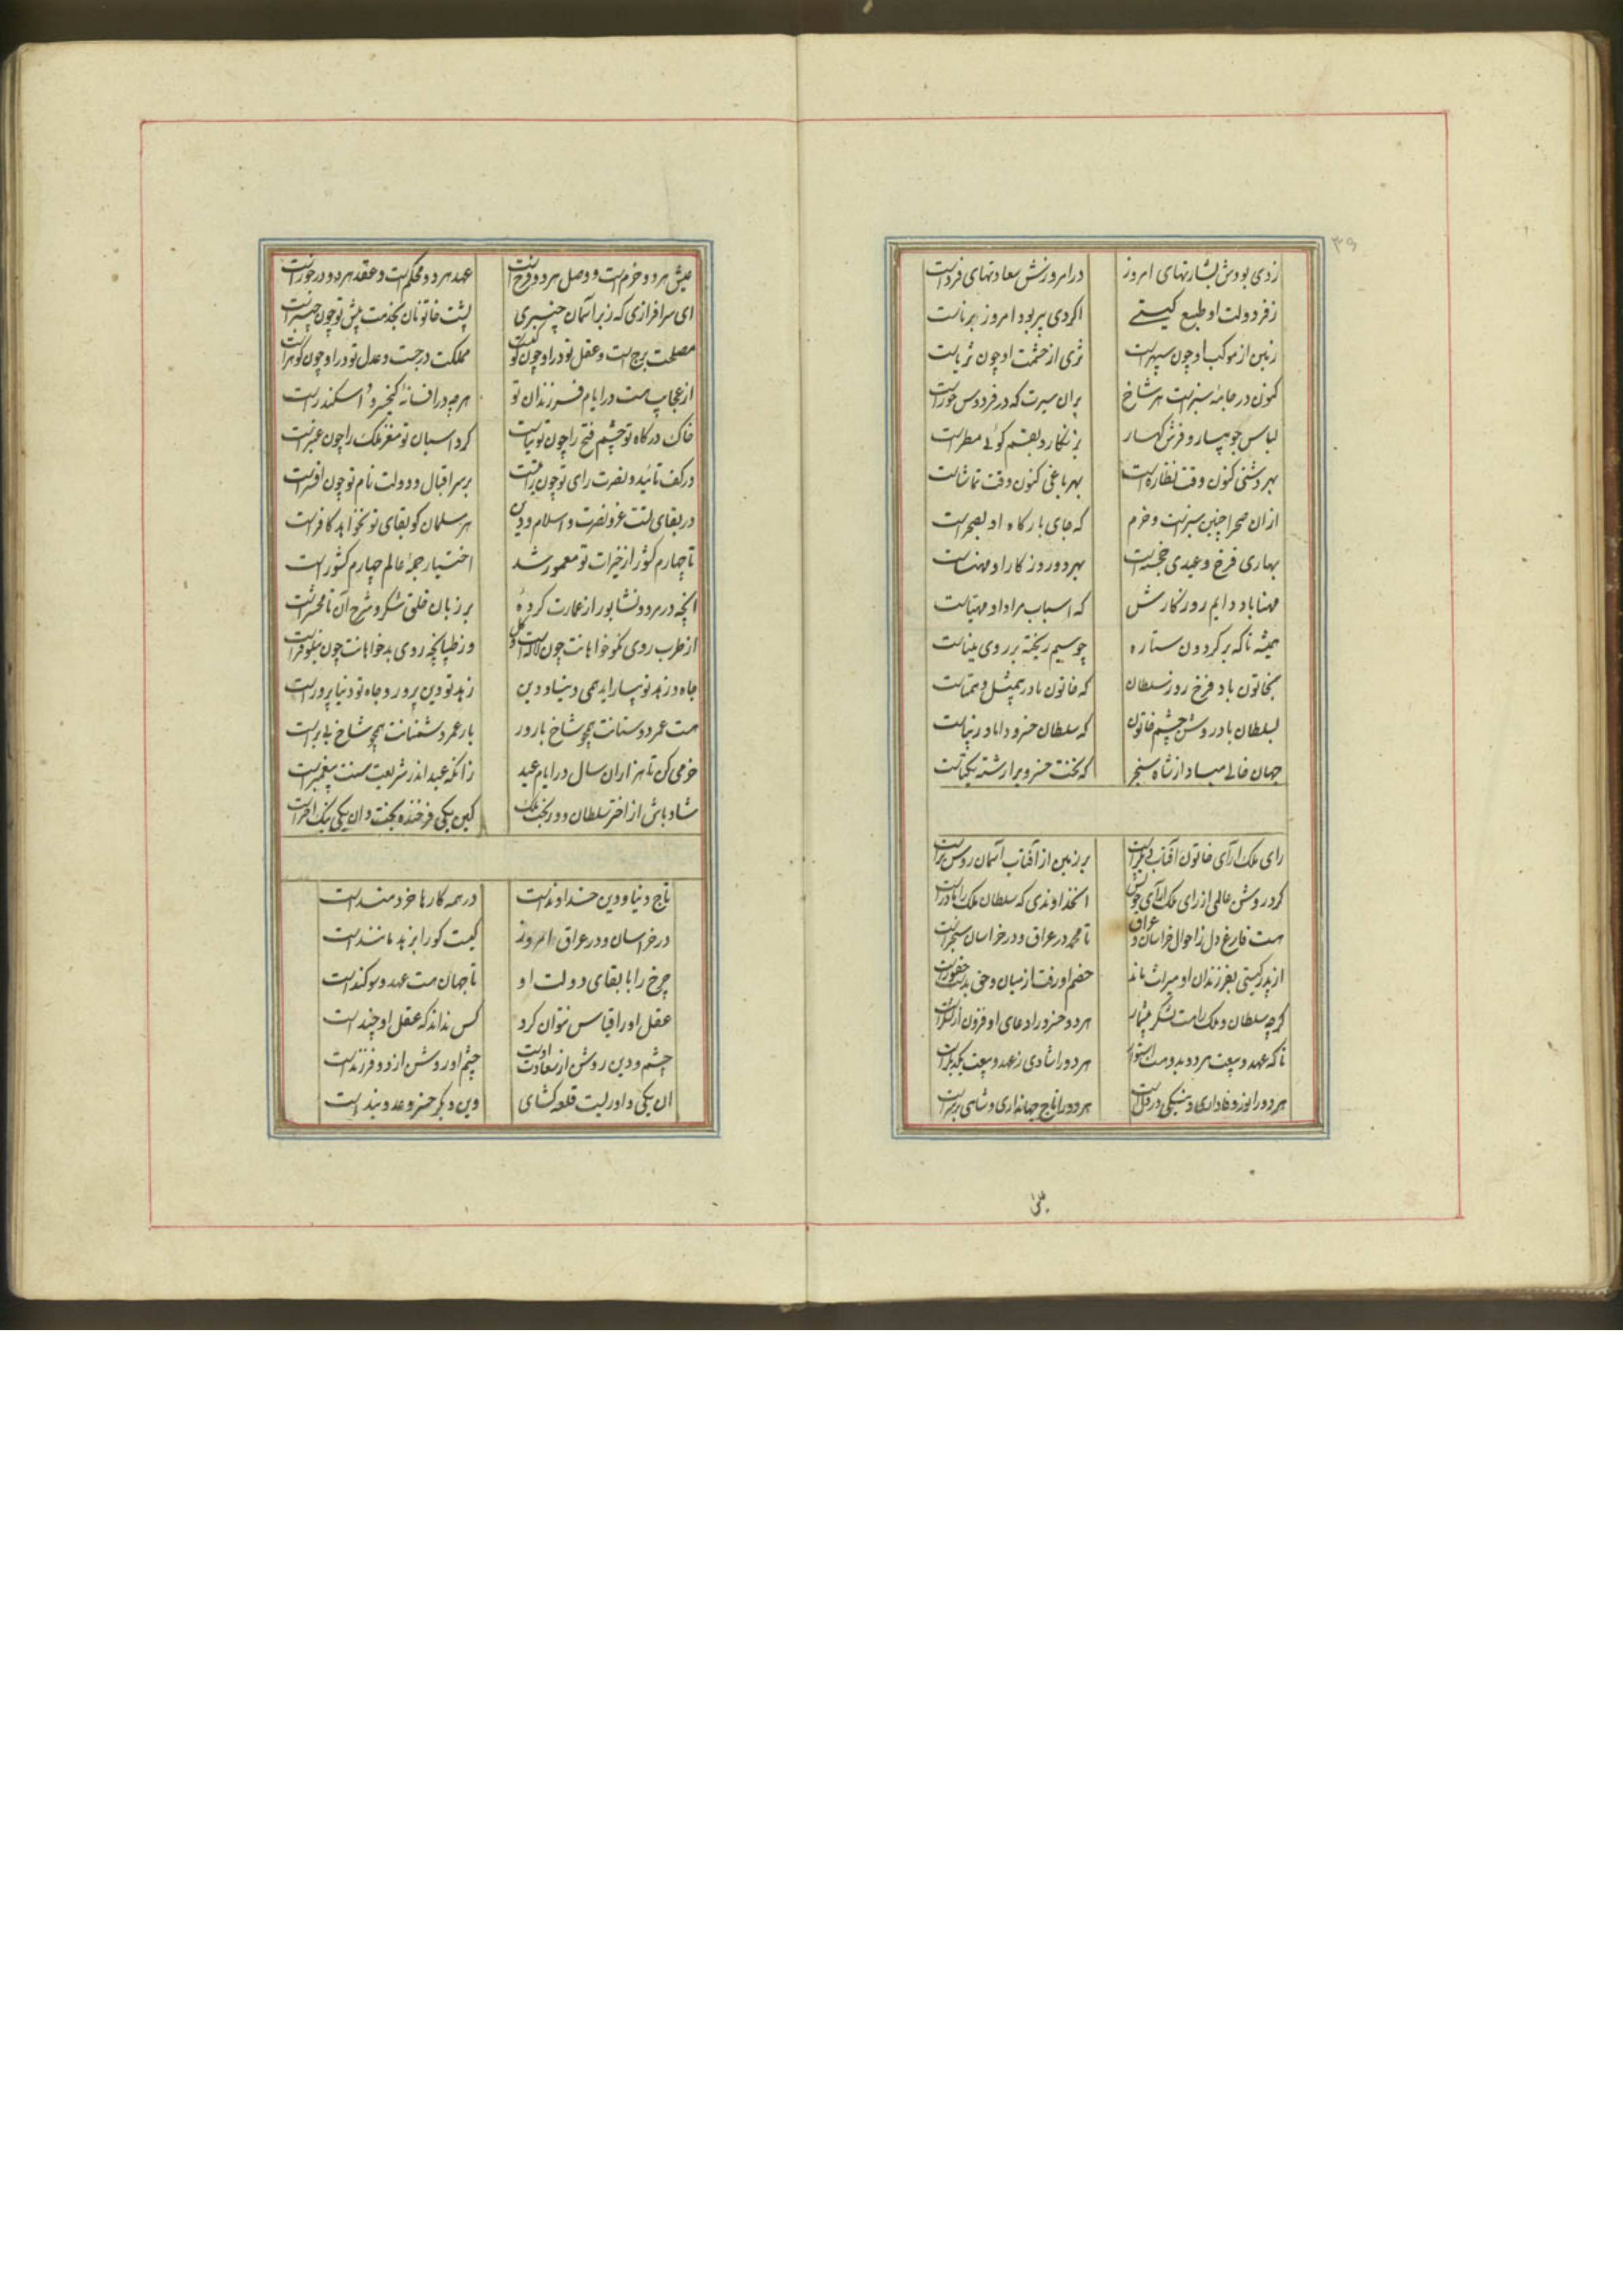 ۳۹
زدی بودش بشارتهای امروز در امروزش سعادتهای فرداست
زفر دولت او طبع گیتی اگر دی پیر بود امروز برناست
زمین از موکب او چون سپهرست ثری از حشمت او چون ثریاست
کنون در جامه سبزست هر شاخ بران سیرت که در فردوس حوراست
لباس جویبار و فرش کهسار بزنگار و بقم گوئی مطراست
بهر دشتی کنون وقت نظاره است بهر باغی کنون وقت تماشاست
ازان صحرا چنین سبزست و خرم که جای بارگاه او بصحراست
بهاری فرخ و عیدی خجسته است بهر دو روزگار او مهناست
مهنا باد دایم روزگارش که اسباب مراد او مهیاست
همیشه تا که بر گردون ستاره چو سیم ریخته بر روی میناست
بخاتون باد فرخ روز سلطان که خاتون نادر بیمثل و همتاست
بسلطان باد روشن چشم خاتون که سلطان خسرو دانا و زیباست
جهان خالی مباد از شاه سنجر که بخت خسرو برا رشته یکتاست
رای ملک آرای خاتون آفتاب دیگرست بر زمین از آفتاب آسمان روشن تراست
کرد روشن عالمی از رای ملک آرای خویش آنخداوندی که سلطان ملک را مادرست
هست فارغ دل ز احوال خراسان و عراق تا محمد در عراق و در خراسان سنجرست
از پدر گیتی بفرزندان او میراث ماند خصم او رفت از میان و حق بدست حقورست
گرچه سلطان و ملک راهست لشکر بیشمار هر دو خسرو را دعای او فزون از لشکرست
تا که عهد و بیعت هر دو بدو هست استوار هر دو را شادی ز عهد و بیعت یکدیگرست
هر دو را نور وفاداری و نیکی در دلست هر دو را تاج جهانداری و شاهی بر سرست
عیش هر دو خرم است و وصل هر دو فرخ است عهد هر دو محکم است و عقد هر دو درخورست
ای سرافرازی که زیر آسمان چنبری پشت خاتونان بخدمت پیش تو چون چنبرست
مصلحت برج است و عقل تو در او چون کوکبست مملکت درجست و عدل تو در او چون گوهرست
از عجایب هست در ایام فرزندان تو هرچه در افسانه کیخسرو و اسکندرست
خاک درگاه تو چشم فتح را چون توتیاست گرد اسبان تو مغز ملک را چون عنبرست
در کف تائید و نصرت رای تو چون تیغست بر سر اقبال و دولت نام تو چون افسرست
در بقای تست عز و نصرت و اسلام و دین هر مسلمان کو بقای تو نخواهد کافرست
تا چهارم کشور از خیرات تو معمور شد اختیار جمله عالم چهارم کشورست
آنچه در مرو و نشابور از عمارت کرده بر زبان خلق شکر و شرح آن تا محشرست
از طرب روی نکو خواهانت چون لاله است و گل وز طپانچه روی بدخواهانت چون نیلوفرست
جاه و زهد تو بیاراید همی دنیا و دین زهد تو دین پرور و جاه تو دنیا پرورست
هست عمر دوستانت همچو شاخ بارور بار عمر دشمنانت همچو شاخ بی برست
خرمی کن تا هزاران سال در ایام عید زانکه عید اندر شریعت سنت پیغمبرست
شاد باش از اختر سلطان و در بخت ملک کین یکی فرخنده بخت و ان یکی نیک اخترست
تاج دنیا و دین خداوندست در همه کارها خردمندست
در خراسان و در عراق امروز کیست کو را بزهد مانندست
چرخ را با بقای دولت او تا جهان هست عهد و سوگندست
عقل او را قیاس نتوان کرد کس نداند که عقل او چندست
چشم و دین روشن از سعادت اوست چشم او روشن از دو فرزندست
ان یکی داوریست قلعه گشای وین دگر خسرو عدو بندست